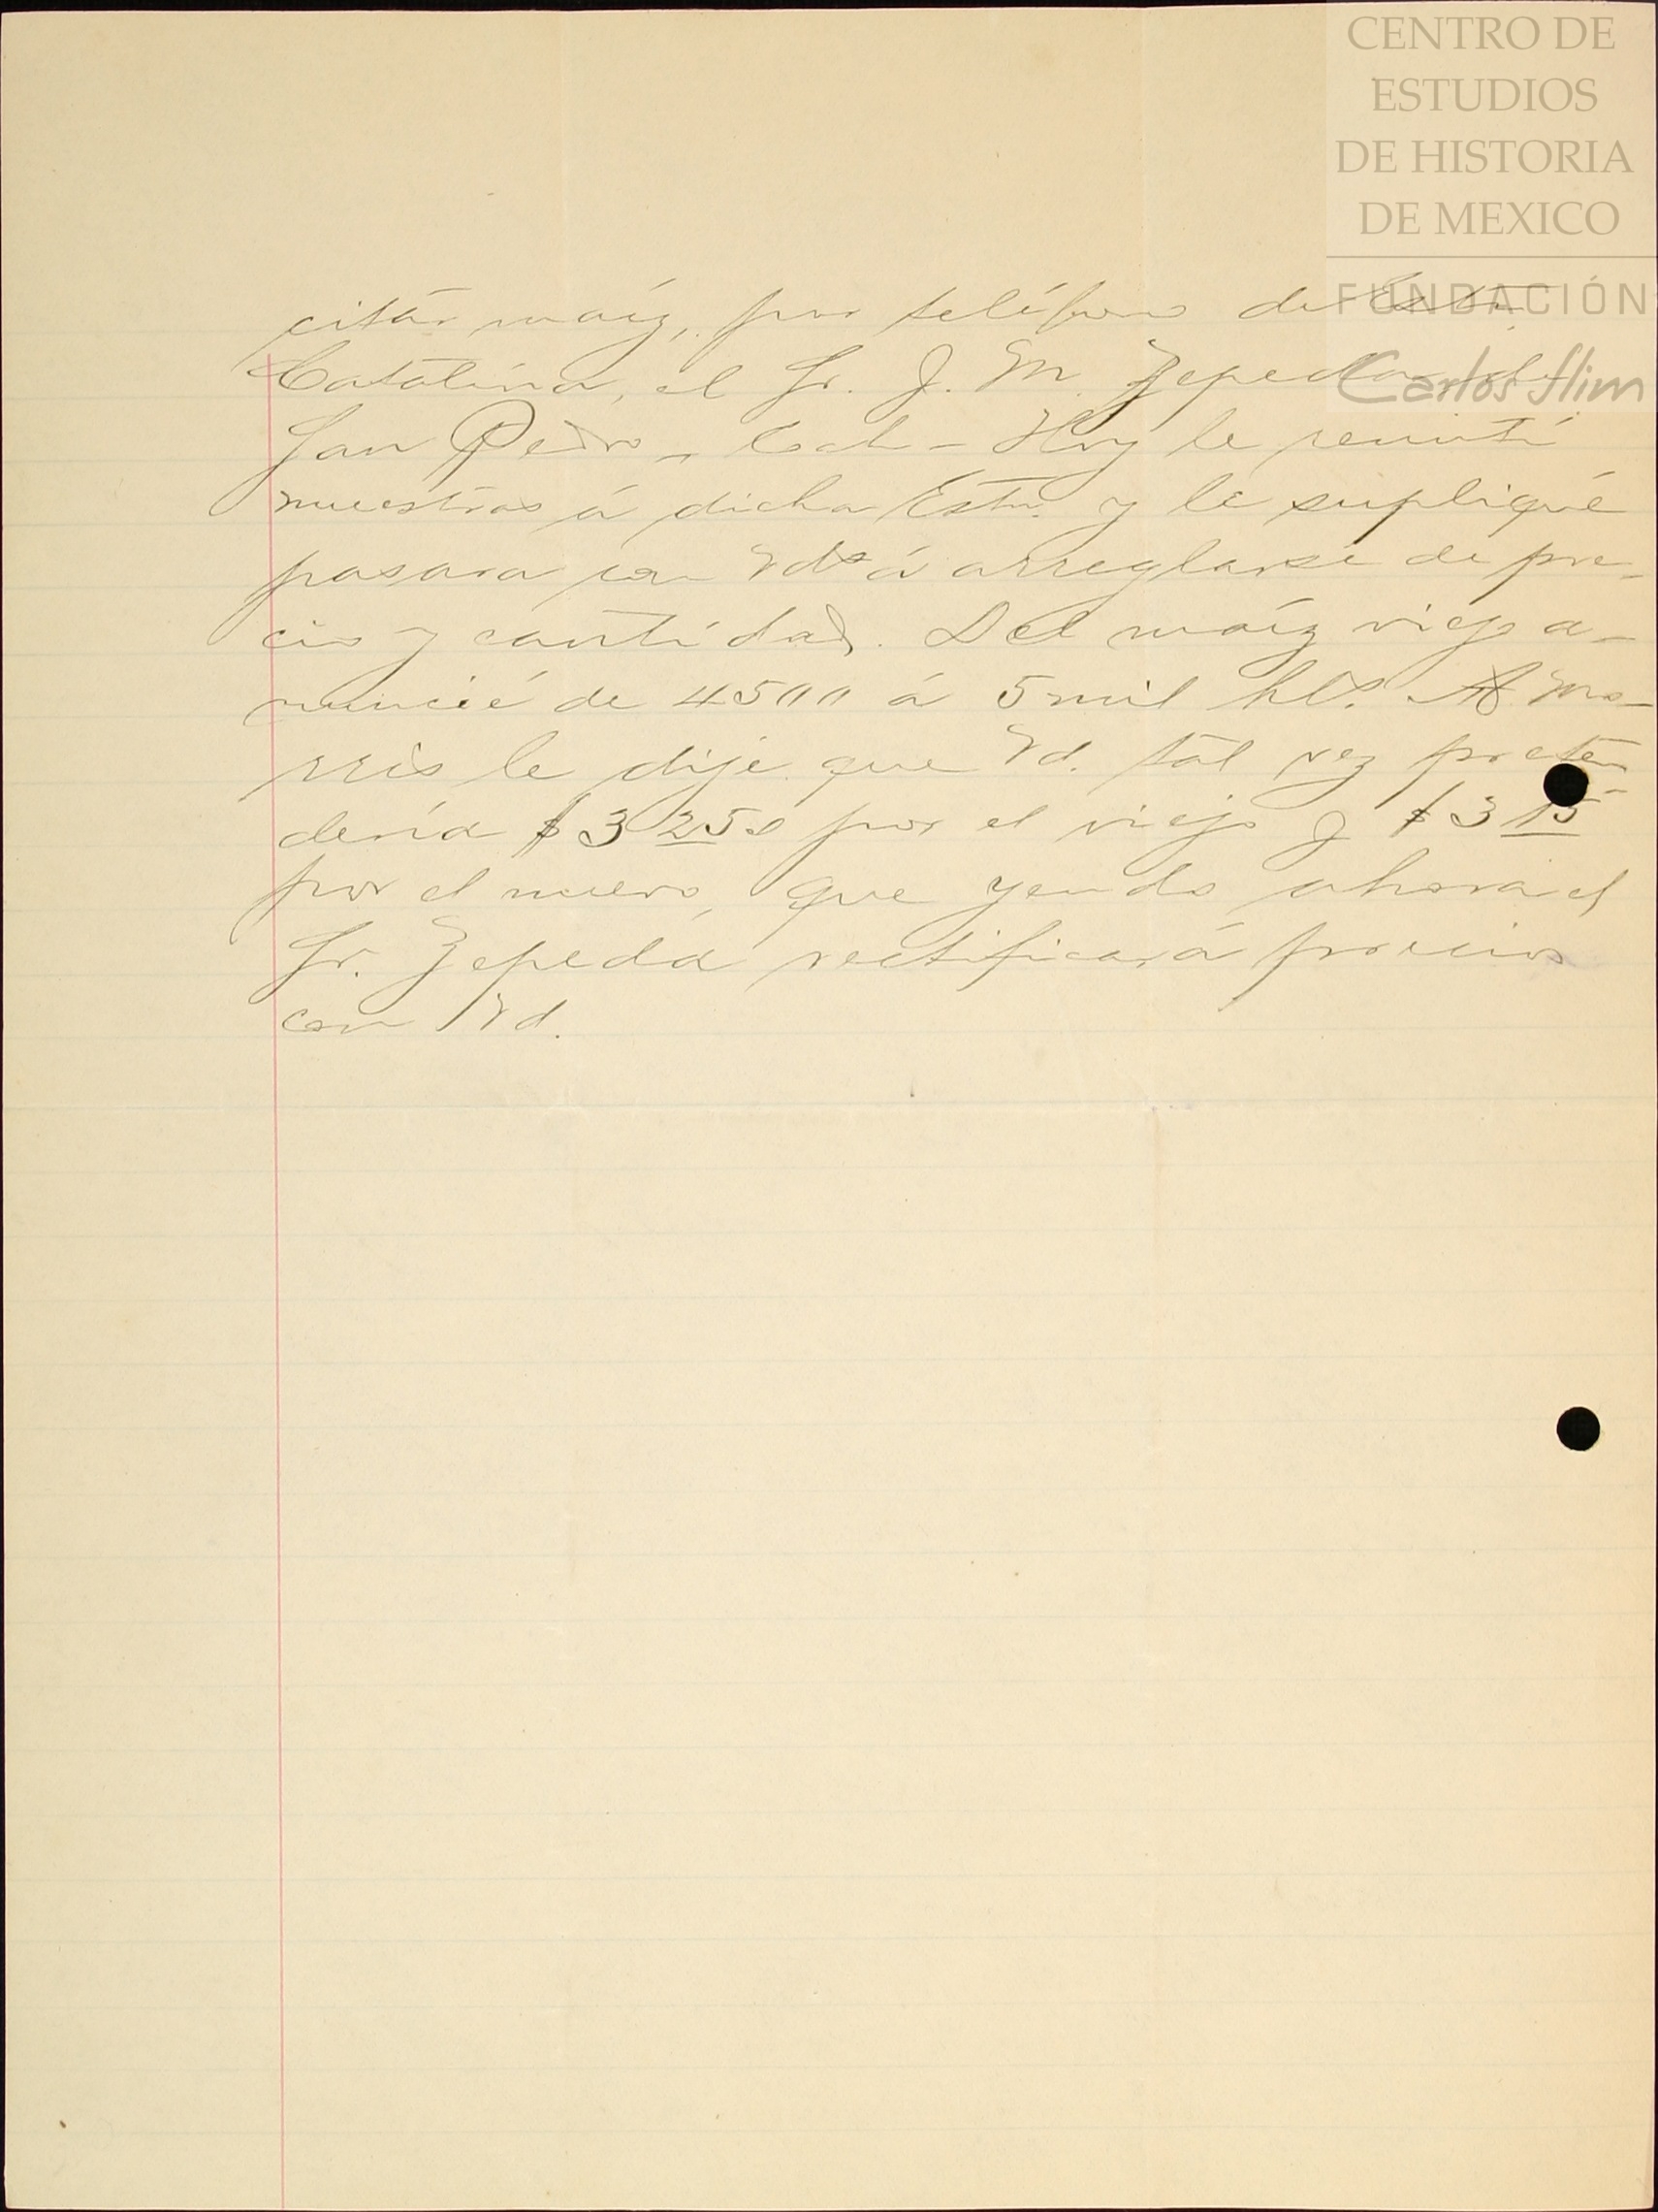 CENTRO DE
ESTUDIOS
DE HISTORIA
DE MEXICO
FUNDACIÓN
Carlos Slim
citár maíz, por teléfono de Estn.
Catalina, el Sr. J. M. Zepeda de
San Pedro, Coah - Hoy le remití
muestras á dicha Estn. y le supliqué
pasara con Vds á arreglarse de pre-
cio y cantidad. Del maíz viejo a-
nuncié de 4500 á 5 mil hls. A Mo-
rris le dije que Vd. tál vez preten-
dería $ 3 25 por el viejo y $ 3 15
por el nuevo, que yendo ahora el
Sr. Zepeda rectificará precios
con Vd.